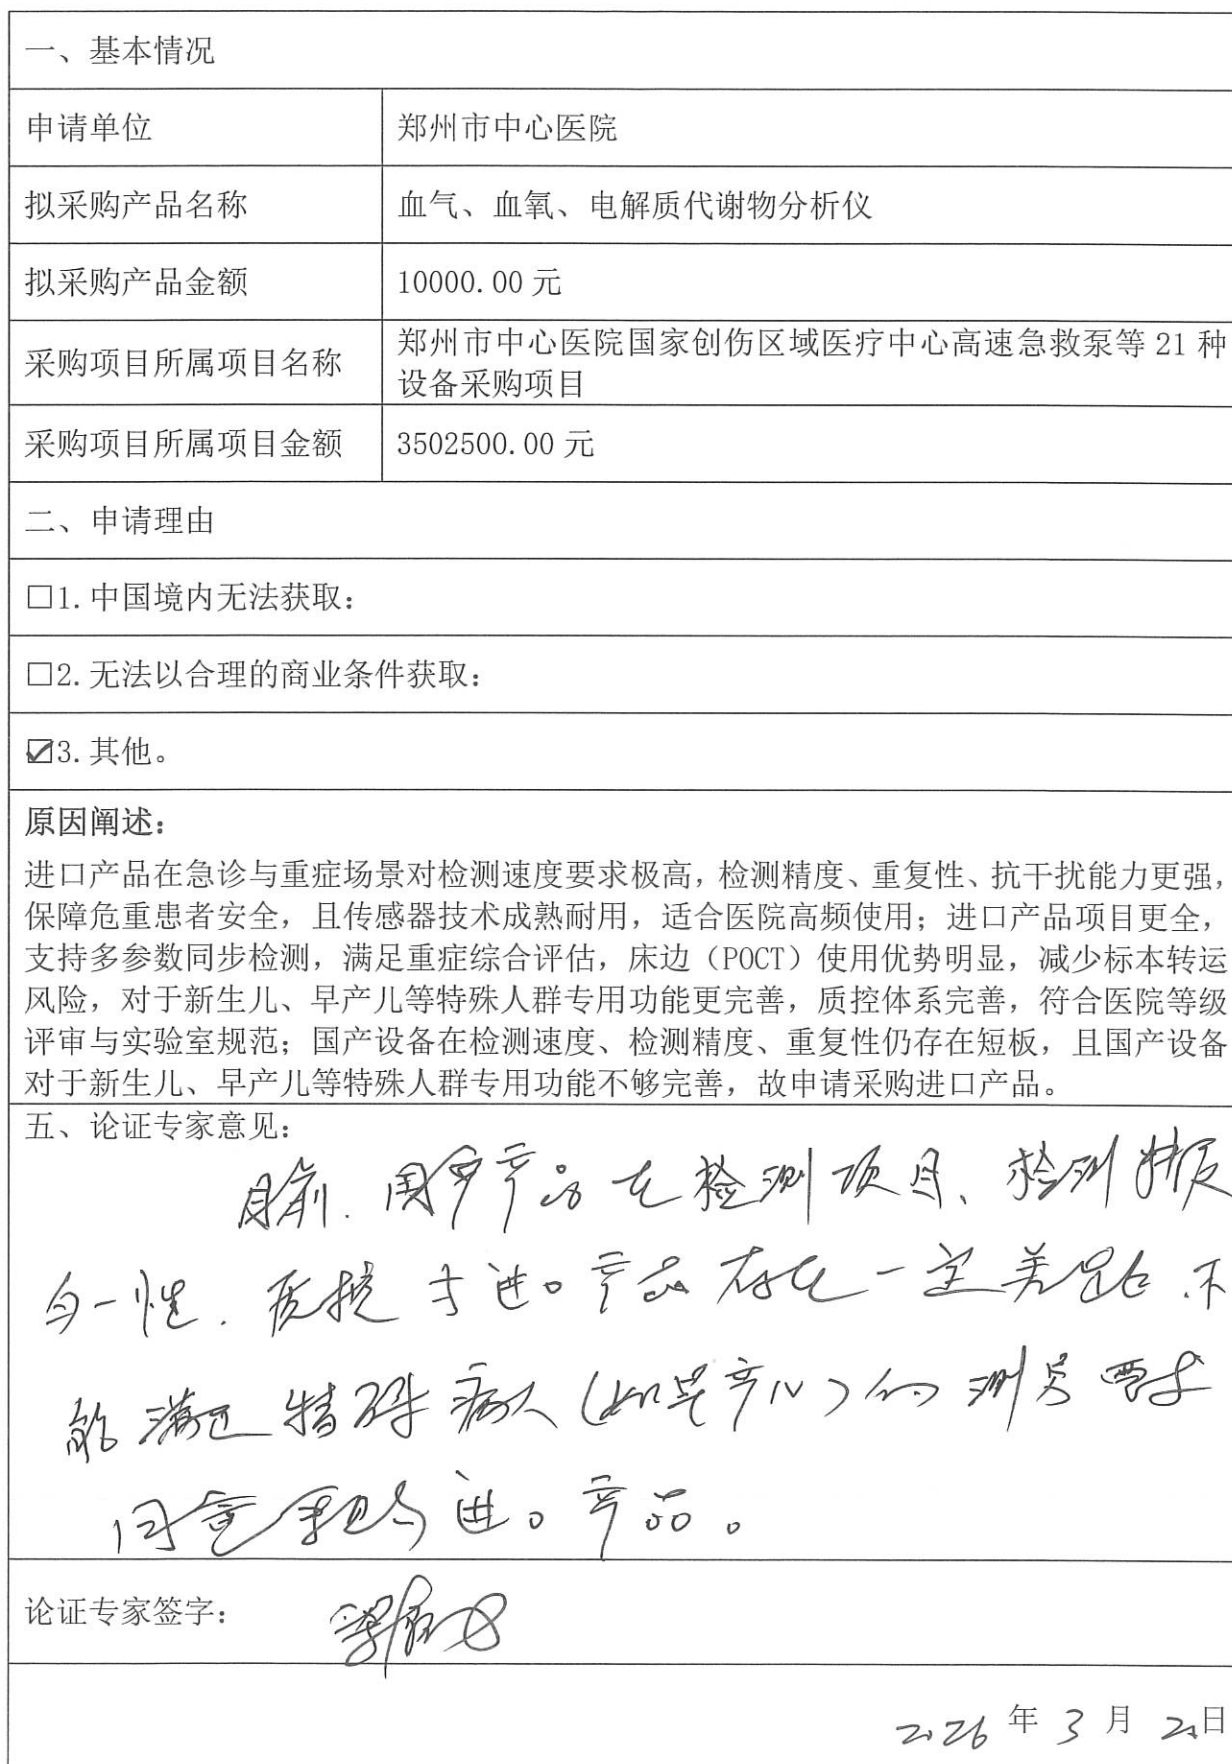 一、基本情况
申请单位
郑州市中心医院
拟采购产品名称
血气、血氧、电解质代谢物分析仪
拟采购产品金额
10000.00 元
采购项目所属项目名称
郑州市中心医院国家创伤区域医疗中心高速急救泵等 21 种
设备采购项目
采购项目所属项目金额
3502500.00 元
二、申请理由
□1.中国境内无法获取：
□2.无法以合理的商业条件获取：
☑3.其他。
原因阐述：
进口产品在急诊与重症场景对检测速度要求极高，检测精度、重复性、抗干扰能力更强，
保障危重患者安全，且传感器技术成熟耐用，适合医院高频使用；进口产品项目更全，
支持多参数同步检测，满足重症综合评估，床边（POCT）使用优势明显，减少标本转运
风险，对于新生儿、早产儿等特殊人群专用功能更完善，质控体系完善，符合医院等级
评审与实验室规范；国产设备在检测速度、检测精度、重复性仍存在短板，且国产设备
对于新生儿、早产儿等特殊人群专用功能不够完善，故申请采购进口产品。
五、论证专家意见：
目前.国产产品在检测项目、检测
一性.质控 进口产品存在一定差距.不
能满足特殊病人（如早产儿）的测
同意采购进口产品。
论证专家签字：
2026 年 3 月 日